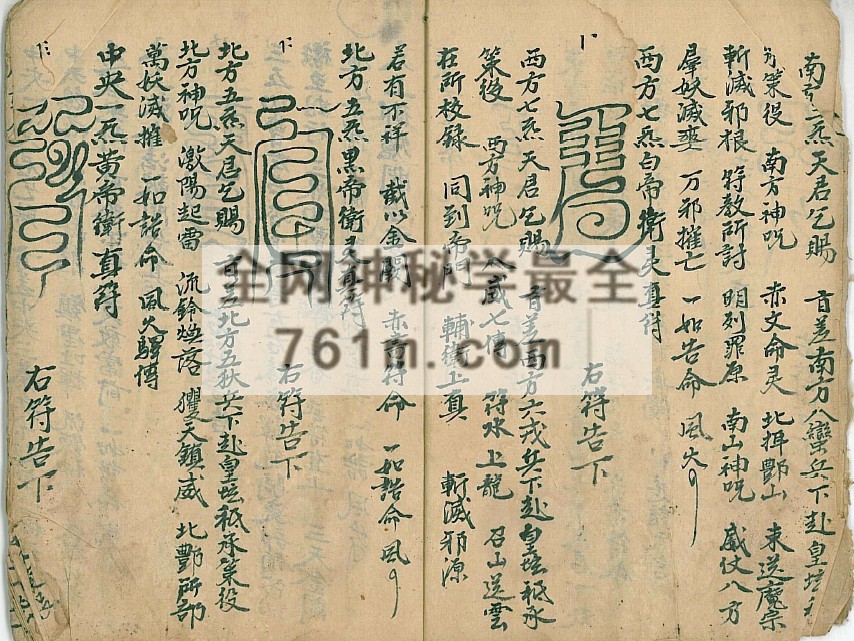 南方三炁天君乞賜 旨差南方八蠻兵下赴皇坛祗
承策役 南方神咒 赤文命灵 北揖酆山 束送魔宗
斬滅邪根 符教所討 明列罪原 南山神咒 威仗八方
羣妖滅爽 万邪摧亡 一如告命 風火
西方七炁白帝衛灵真符
右符告下
西方七炁天君乞賜 旨差西方六戎兵下赴皇坛祗承
策役 西方神咒 八威七傳 符水上龍 召山送雲
在所校録 同到帝門 輔衛上真 斬滅邪源
若有不祥 裁以金閣 赤帝符命 一如誥命 風
北方五炁黒帝衛灵真符
右符告下
北方五炁天君乞賜 旨差北方五狄兵下赴皇坛祗承策役
北方神咒 激陽起雷 流鈴煥落 玃天鎮威 北酆所部
萬妖滅摧 一如誥命 風火驛傳
中央一炁黄帝衛真符
右符告下
全网神秘学最全
761m.com